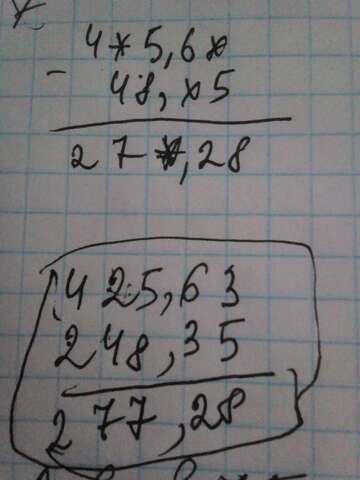 4*5,6*
- 48,*5
27*,28
425,63
248,35
277,28